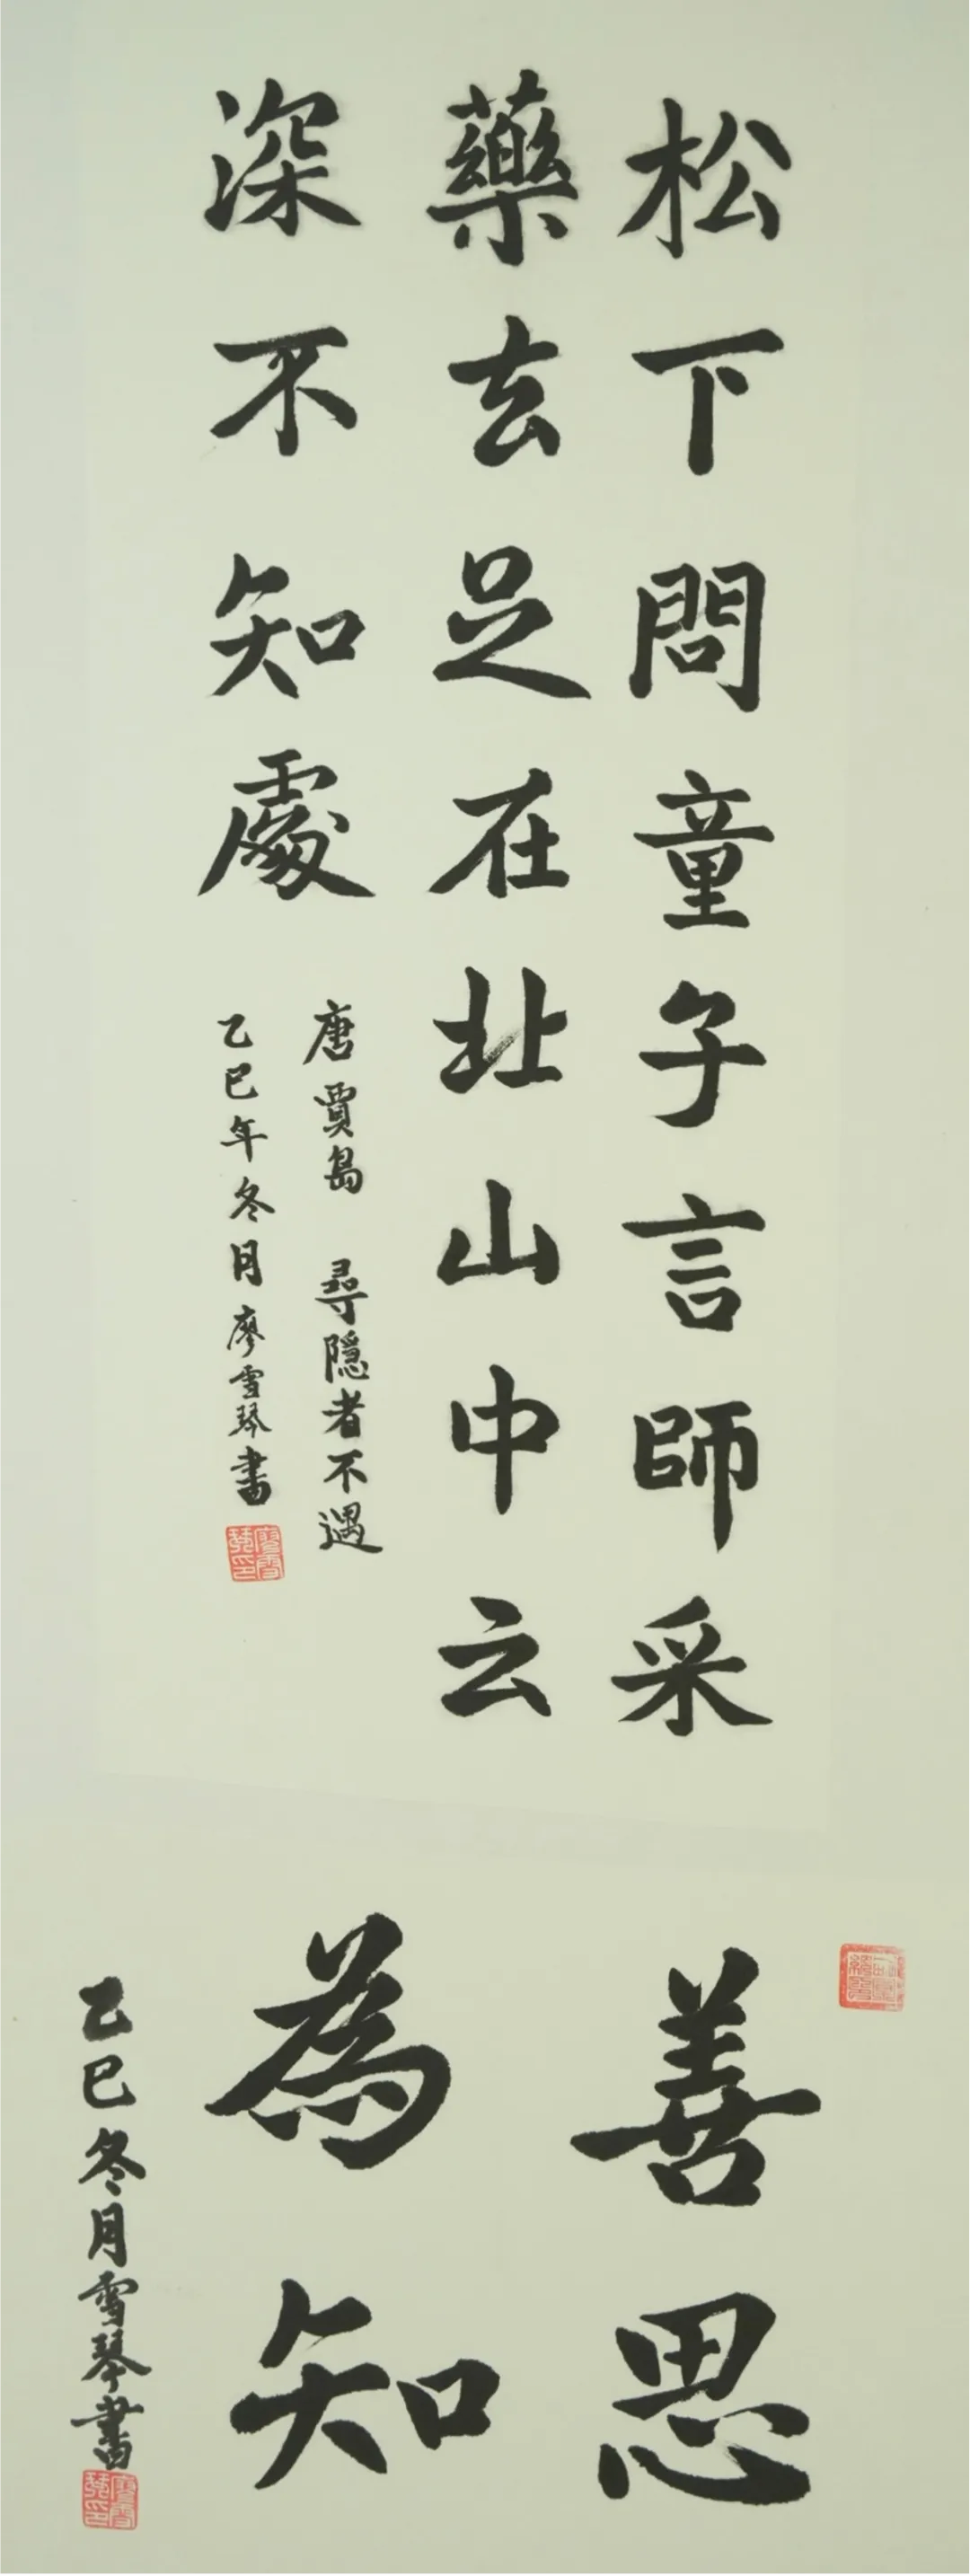 松下問童子言師采
藥去足在北山中云
深不知處
唐賈島 尋隱者不遇
乙巳年冬月廖雪琴書
廖雪琴印
善思
為知
乙巳冬月雪琴書
廖雪琴印